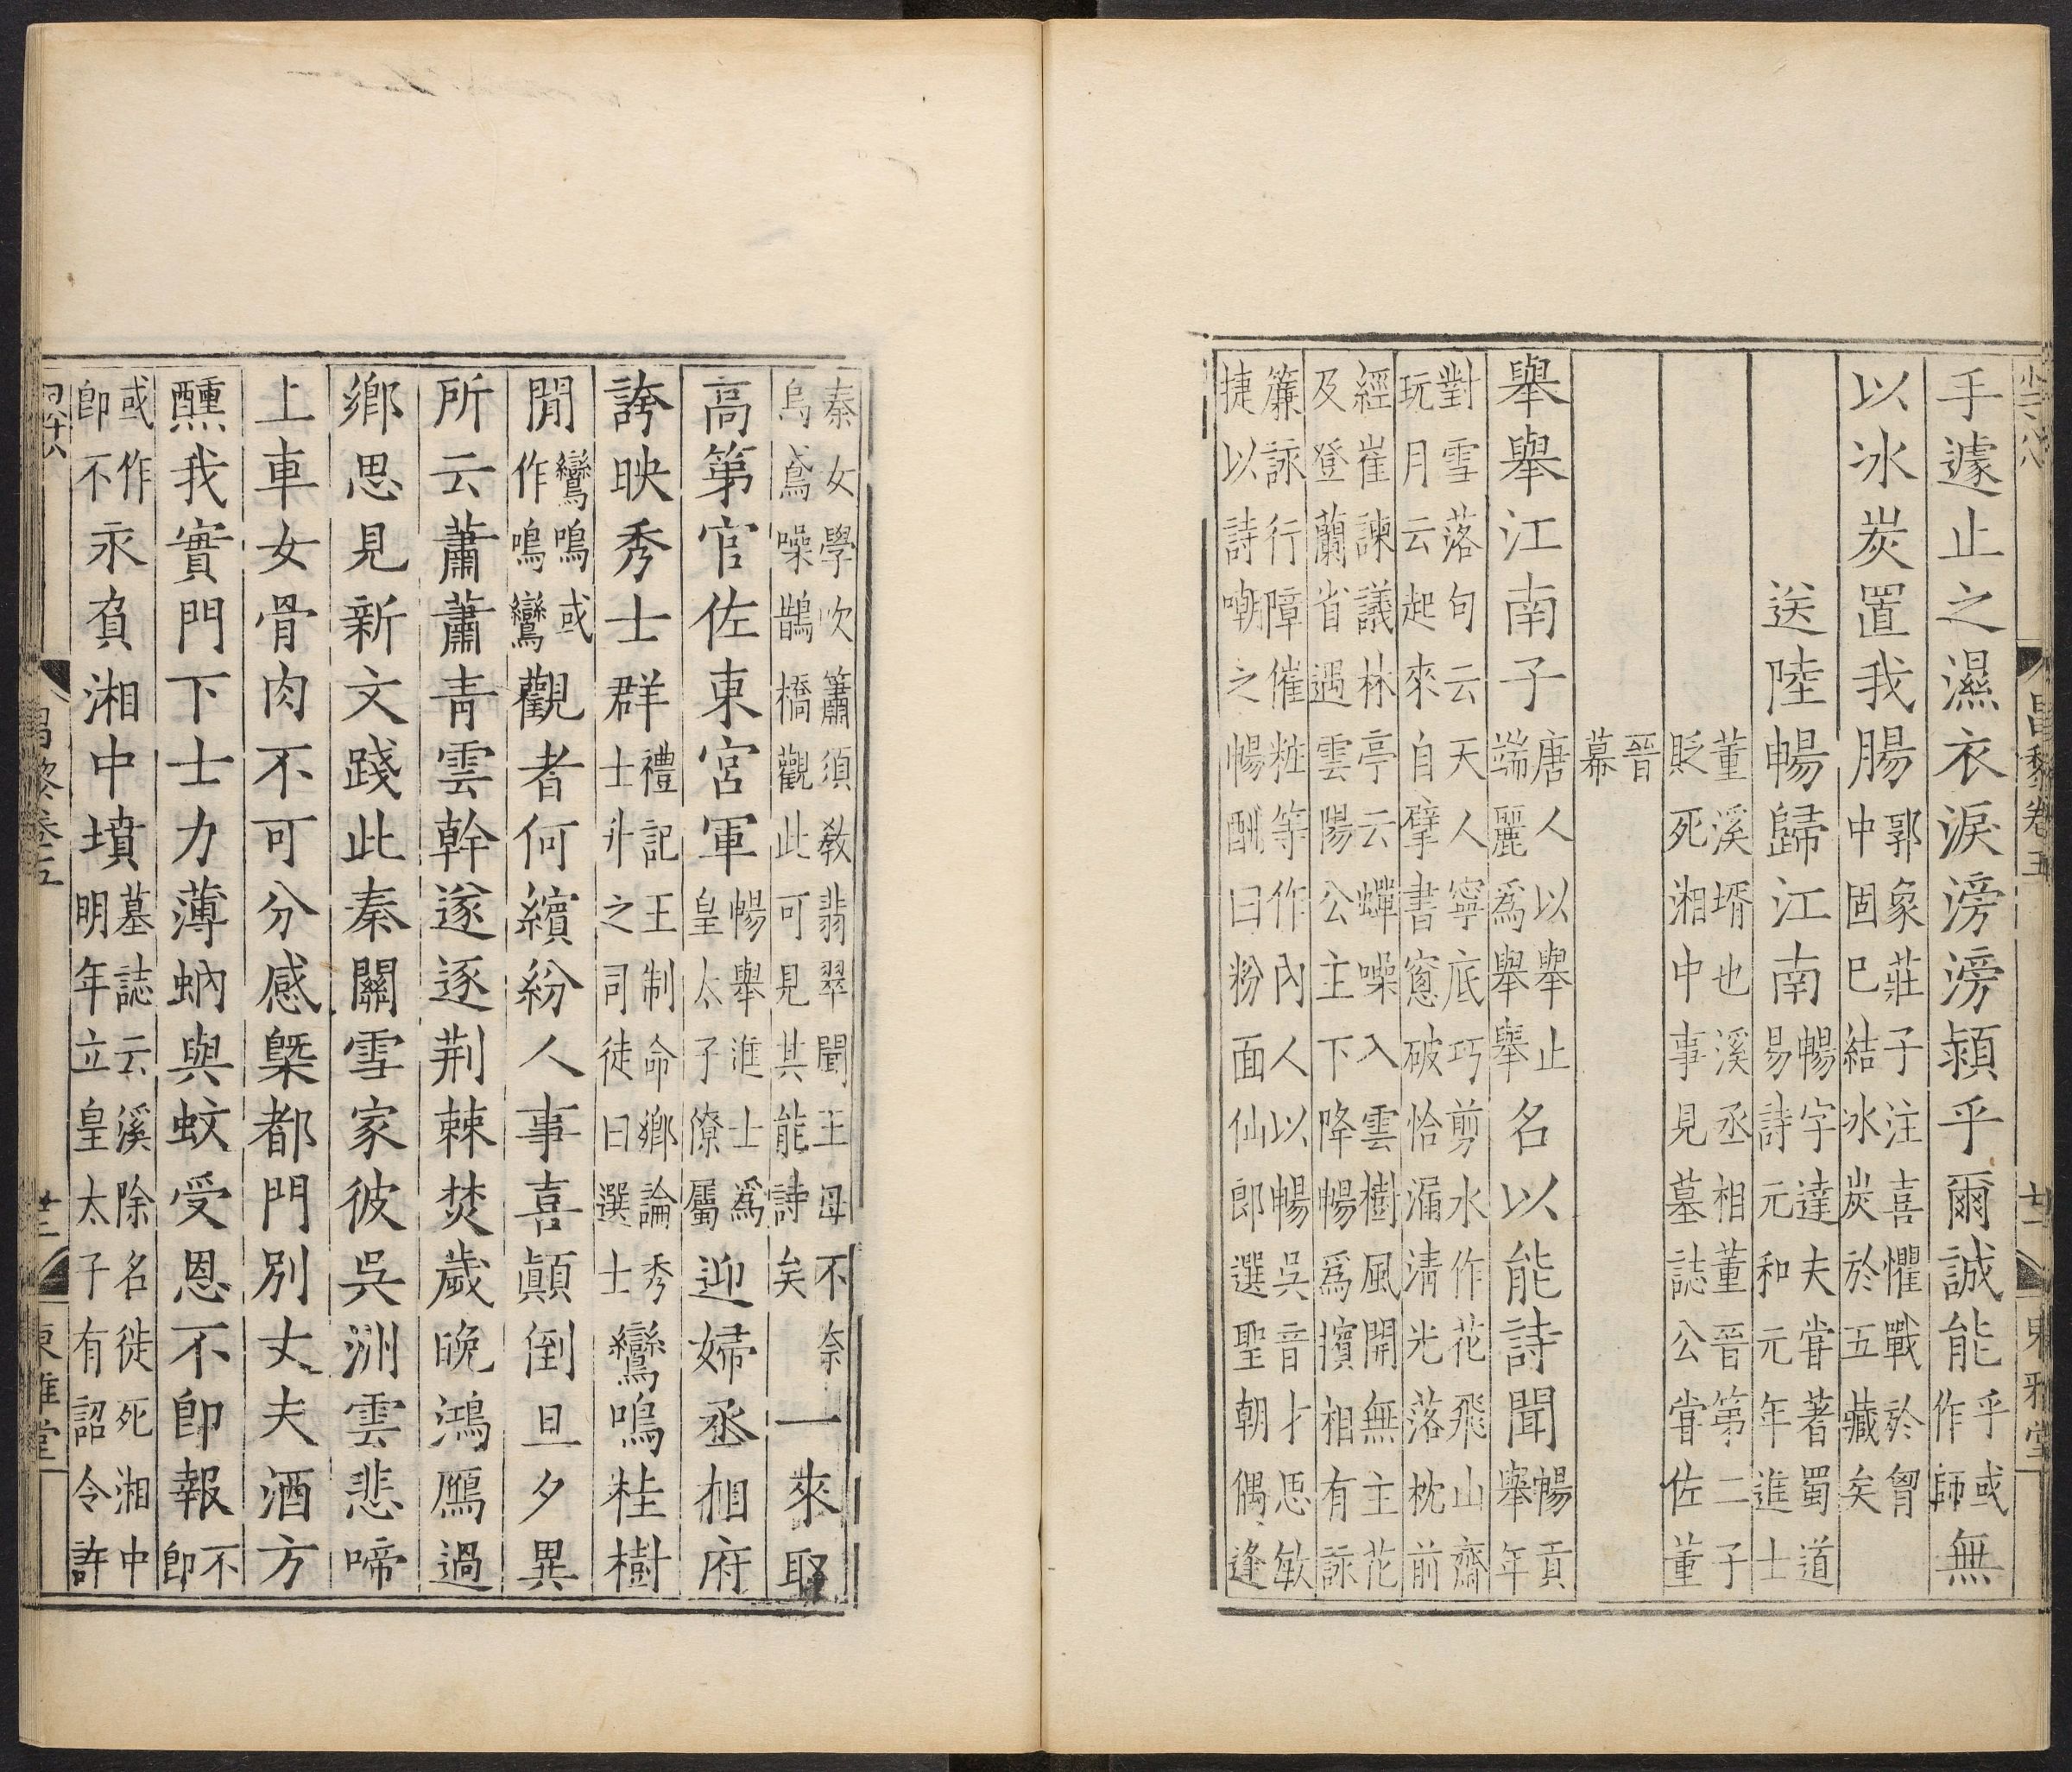 昌黎卷五
東雅堂
手遽止之濕衣淚滂滂穎乎爾誠能乎或作師無
以冰炭置我腸郭象莊子注喜懼戰於胷中固巳結冰炭於五藏矣
送陸暢歸江南暢字達夫甞著蜀道易詩元和元年進士
董溪壻也溪丞相董晉第二子貶死湘中事見墓誌公甞佐董
晉幕
舉舉江南子唐人以舉止端麗爲舉舉名以能詩聞暢貢舉年
對雪落句云天人寧底巧剪水作花飛山齋玩月云起來自擘書窻破恰漏清光落枕前
經崔諫議林亭云蟬噪入雲樹風開無主花及登蘭省遇雲陽公主下降暢爲擯相有詠
簾詠行障催粧等作內人以暢吳音才思敏捷以詩嘲之暢酬曰粉面仙郎選聖朝偶逢
秦女學吹簫須教翡翠聞王母不奈烏鳶噪鵲橋觀此可見其能詩矣一來取
高第官佐東宮軍暢舉進士爲皇太子僚屬迎婦丞相府
誇映秀士群禮記王制命鄉論秀士升之司徒曰選士鸞鳴桂樹
閒鸞鳴或作鳴鸞觀者何繽紛人事喜顛倒旦夕異
所云蕭蕭青雲幹遂逐荆棘焚歲晚鴻鴈過
鄉思見新文踐此秦關雪家彼吳洲雲悲啼
上車女骨肉不可分感槩都門別丈夫酒方
醺我實門下士力薄蚋與蚊受恩不即報不即
或作即不永負湘中墳墓誌云溪除名徙死湘中明年立皇太子有詔令許
昌黎卷五
廿二
東雅堂